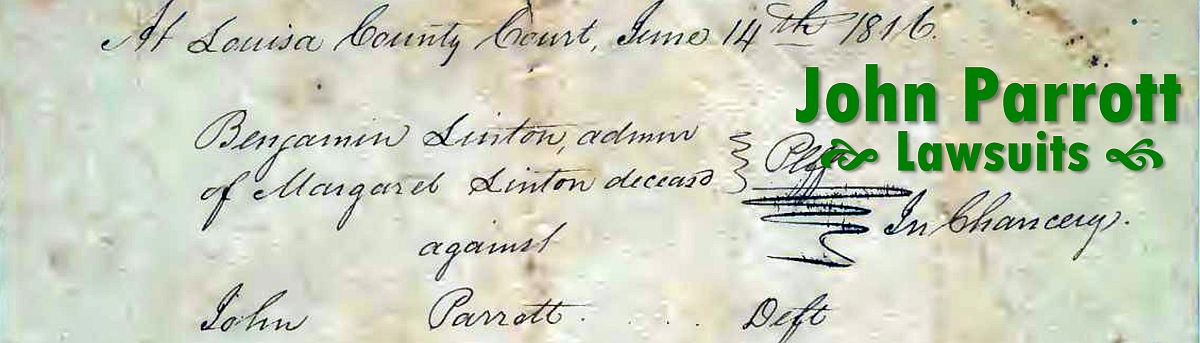 At Louisa County Court, June 14th 1816.
John Parrott
Lawsuits
Benjamin Linton, admor
of Margaret Linton deceasd } Plff
In Chancery.
against
John Parrott . . . . Deft